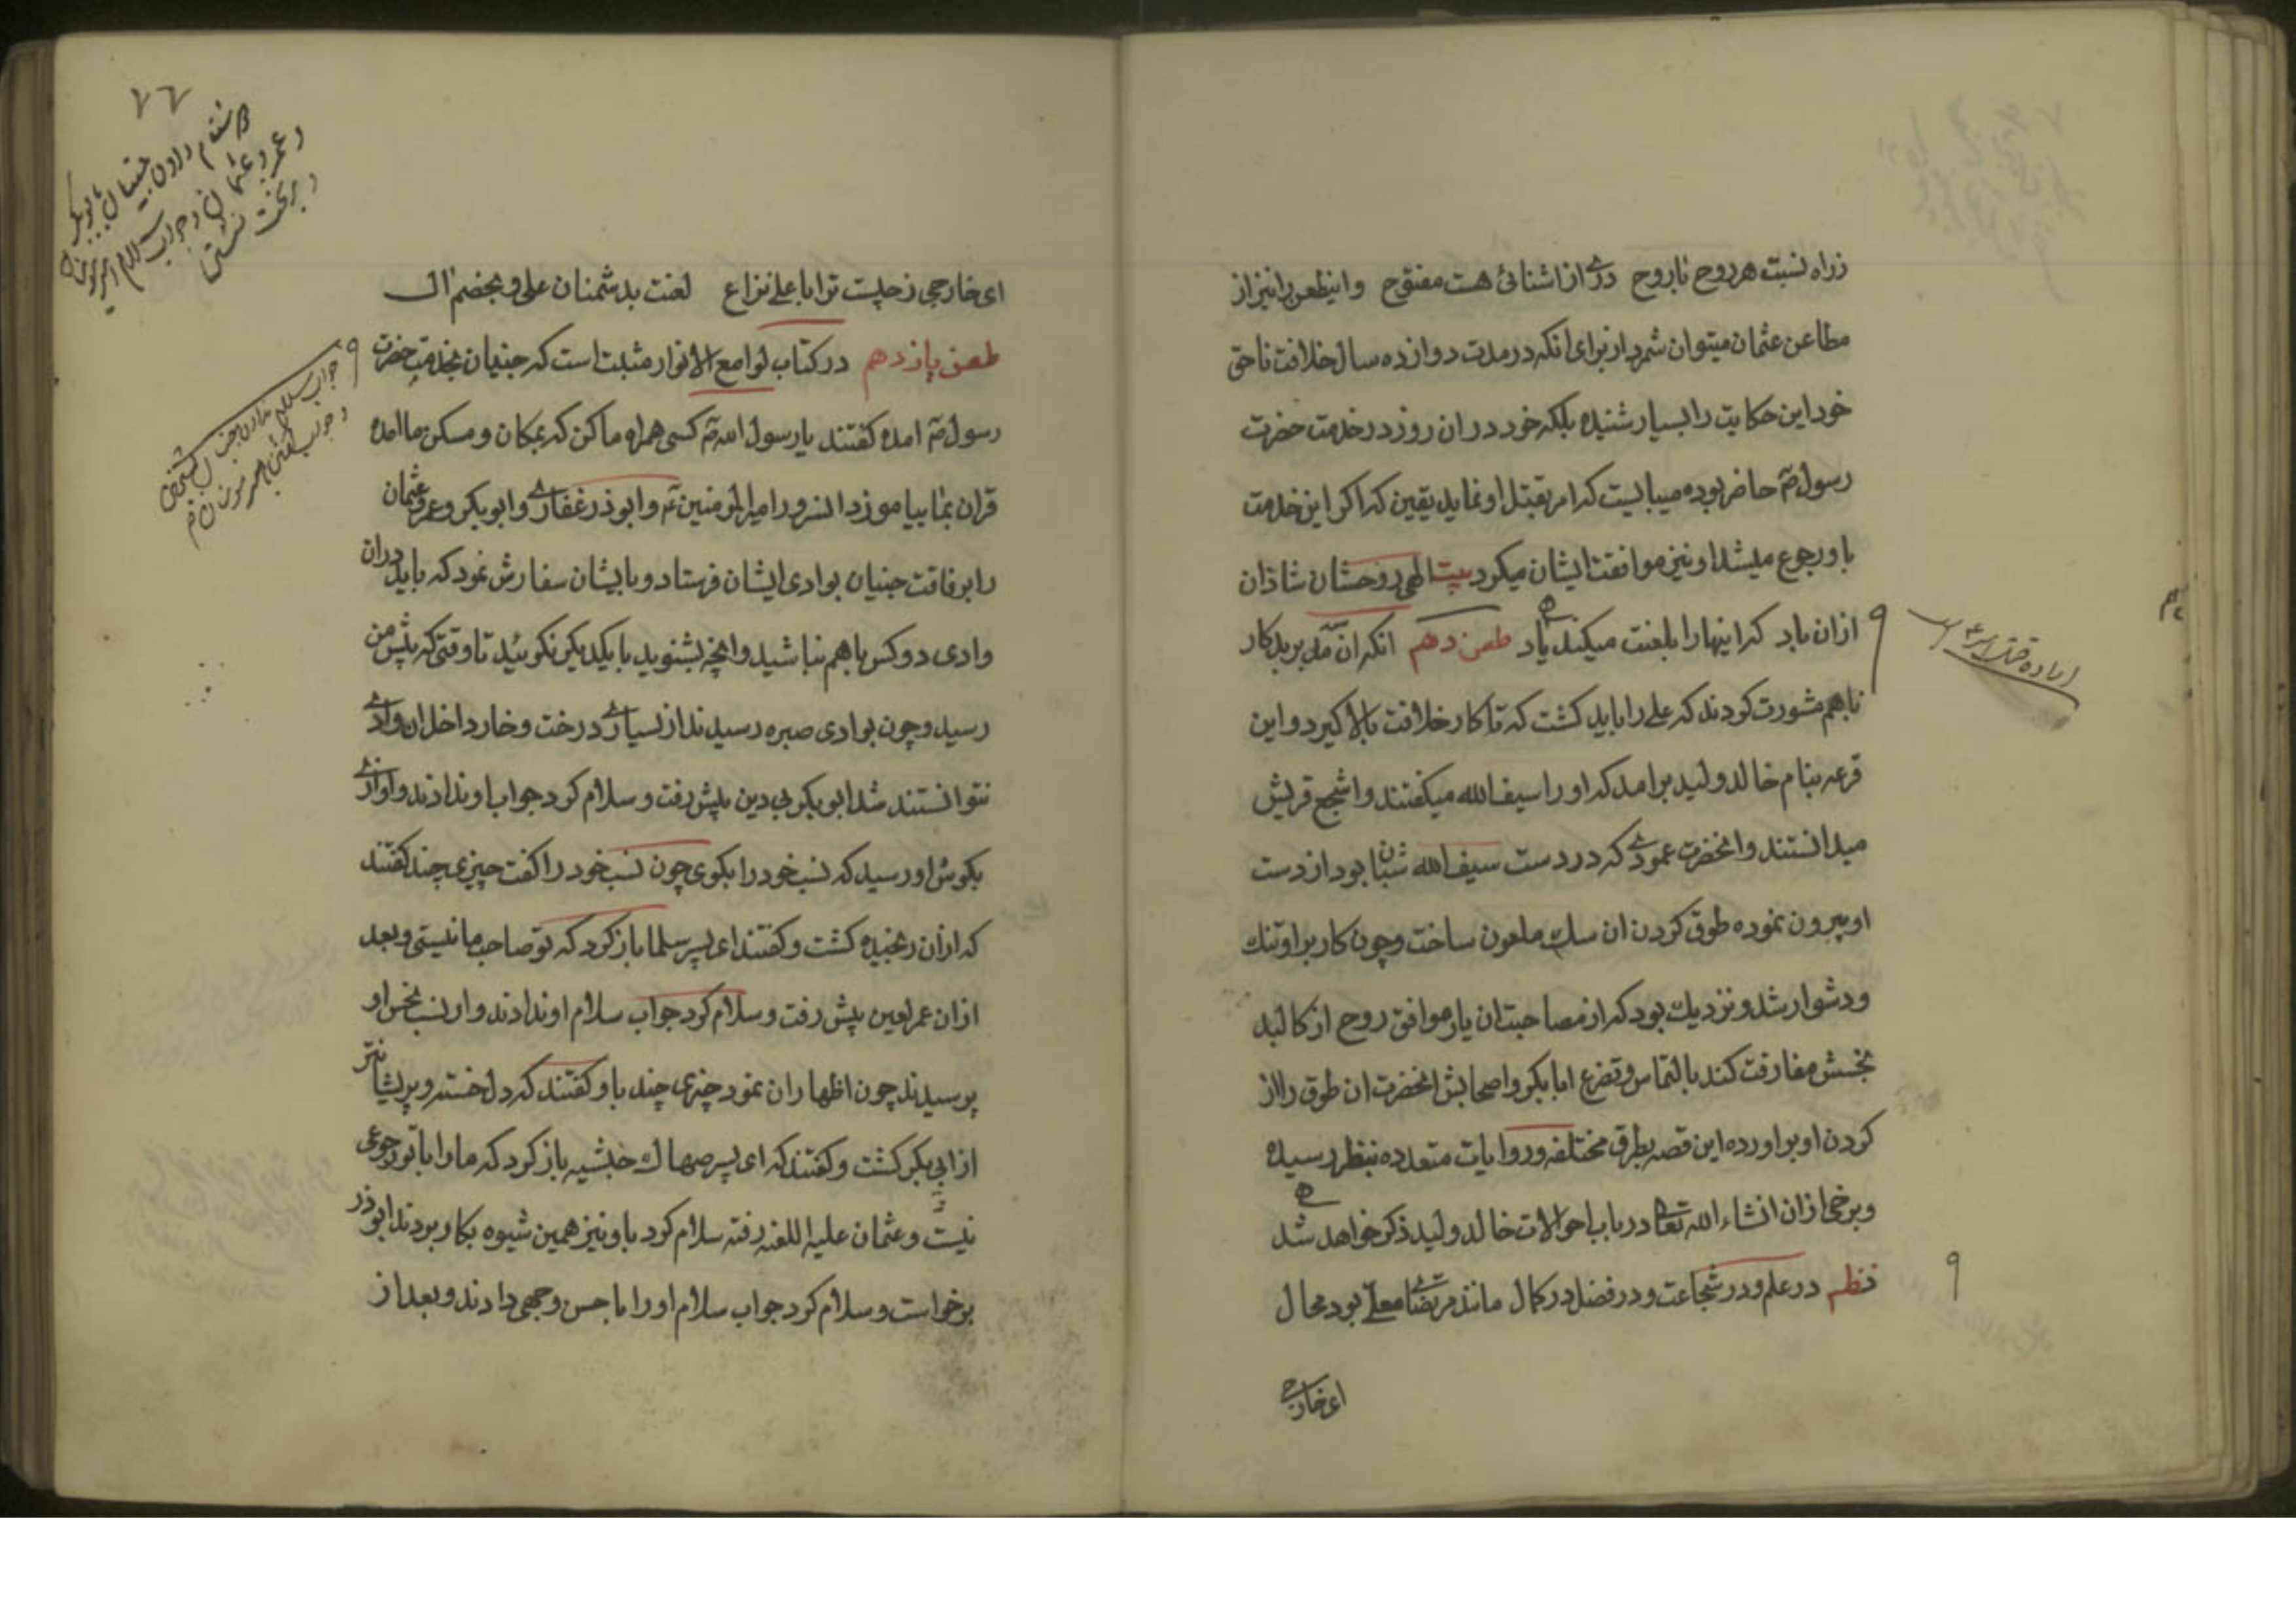 زراه نسبت هر روح با روح دری از اشنائی هست مفتوح و اینطعن را نیز از
مطاعن عثمان میتوان شمرد از برای انکه در مدت دوازده سال خلافت ناحق
خود این حکایت را بسیار شنیده بلکه خود در ان روز در خدمت حضرت
رسول ص حاضر بوده میبایست که امر بقتل او نماید یقین که اکر این خدمت
باو رجوع میشد او نیز موافقت ایشان میکرد بیت الهی روحشان شاد ان
از ان باد که اینها را بلعنت میکند یاد طعن دهم انکه ان مدبر بدکار
باهم مشورت کردند که علی را باید کشت که تا کار خلافت بالا کیرد و این
قرعه بنام خالد ولید برامد که او را سیف الله میکفتند و اشجع قریش
میدانستند و انحضرت عمودی که در دست سیف الله بود از دست
او بیرون نموده طوق کردن ان سک ملعون ساخت و چون کار بر او تنک
و دشوار شد و نزدیک بود که از مصاحبت ان یار موافق روح از کالبد
نجسش مفارقت کند بالتماس و تضرع ابابکر و اصحابش انحضرت ان طوق را از
کردن او براورده این قصه بطرق مختلفه و روایات متعدده بنظر رسیده
و برخی از ان انشاء الله تعالی در باب احوالات خالد ولید ذکر خواهد شد
نظم در علم و در شجاعت و در فضل در کمال مانند مرتضای معلی بود محال
ای خارجی
۷۶
ای خارجی ز چیست ترا با علی نزاع لعنت بدشمنان علی و بخصم ال
طعن یازدهم در کتاب لوامع الانوار مثبت است که جنیان بخدمت حضرت
رسول ص امده کفتند یا رسول الله ص کسی همراه ما کن که بمکان و مسکن ما امده
قران بما بیاموزد انسرور امیرالمومنین ع و ابوذر غفاری و ابوبکر و عمر و عثمان
را برفاقت جنیان بوادی ایشان فرستاد و بایشان سفارش نمود که باید در ان
وادی دو کس باهم نباشید و انچه بشنوید با یکدیکر نکوئید تا وقتی که پیش من
رسید و چون بوادی صبره رسیدند از بسیاری درخت و خار داخل ان وادی
نتوانستند شد ابوبکر بی دین پیش رفت و سلام کرد جواب او ندادند و اوازی
بکوش او رسید که نسب خود را بکوی چون نسب خود را کفت چیزی چند کفتند
که از ان رنجیده کشت و کفتند ای پسر سلما باز کرد که تو صاحب ما نیستی و بعد
از ان عمر لعین پیش رفت و سلام کرد جواب سلام او ندادند و از نسب نحس او
پرسیدند چون اظهار ان نمود چیزی چند باو کفتند که دل خسته و پریشان تر
از ابی بکر کشت و کفتند که ای پسر صهاک حبشیه باز کرد که ما را با تو رجوعی
نیست و عثمان علیه اللعنه رفته سلام کرد باو نیز همین شیوه بکار بردند ابوذر
برخواست و سلام کرد جواب سلام او را باحسن وجهی دادند و بعد از